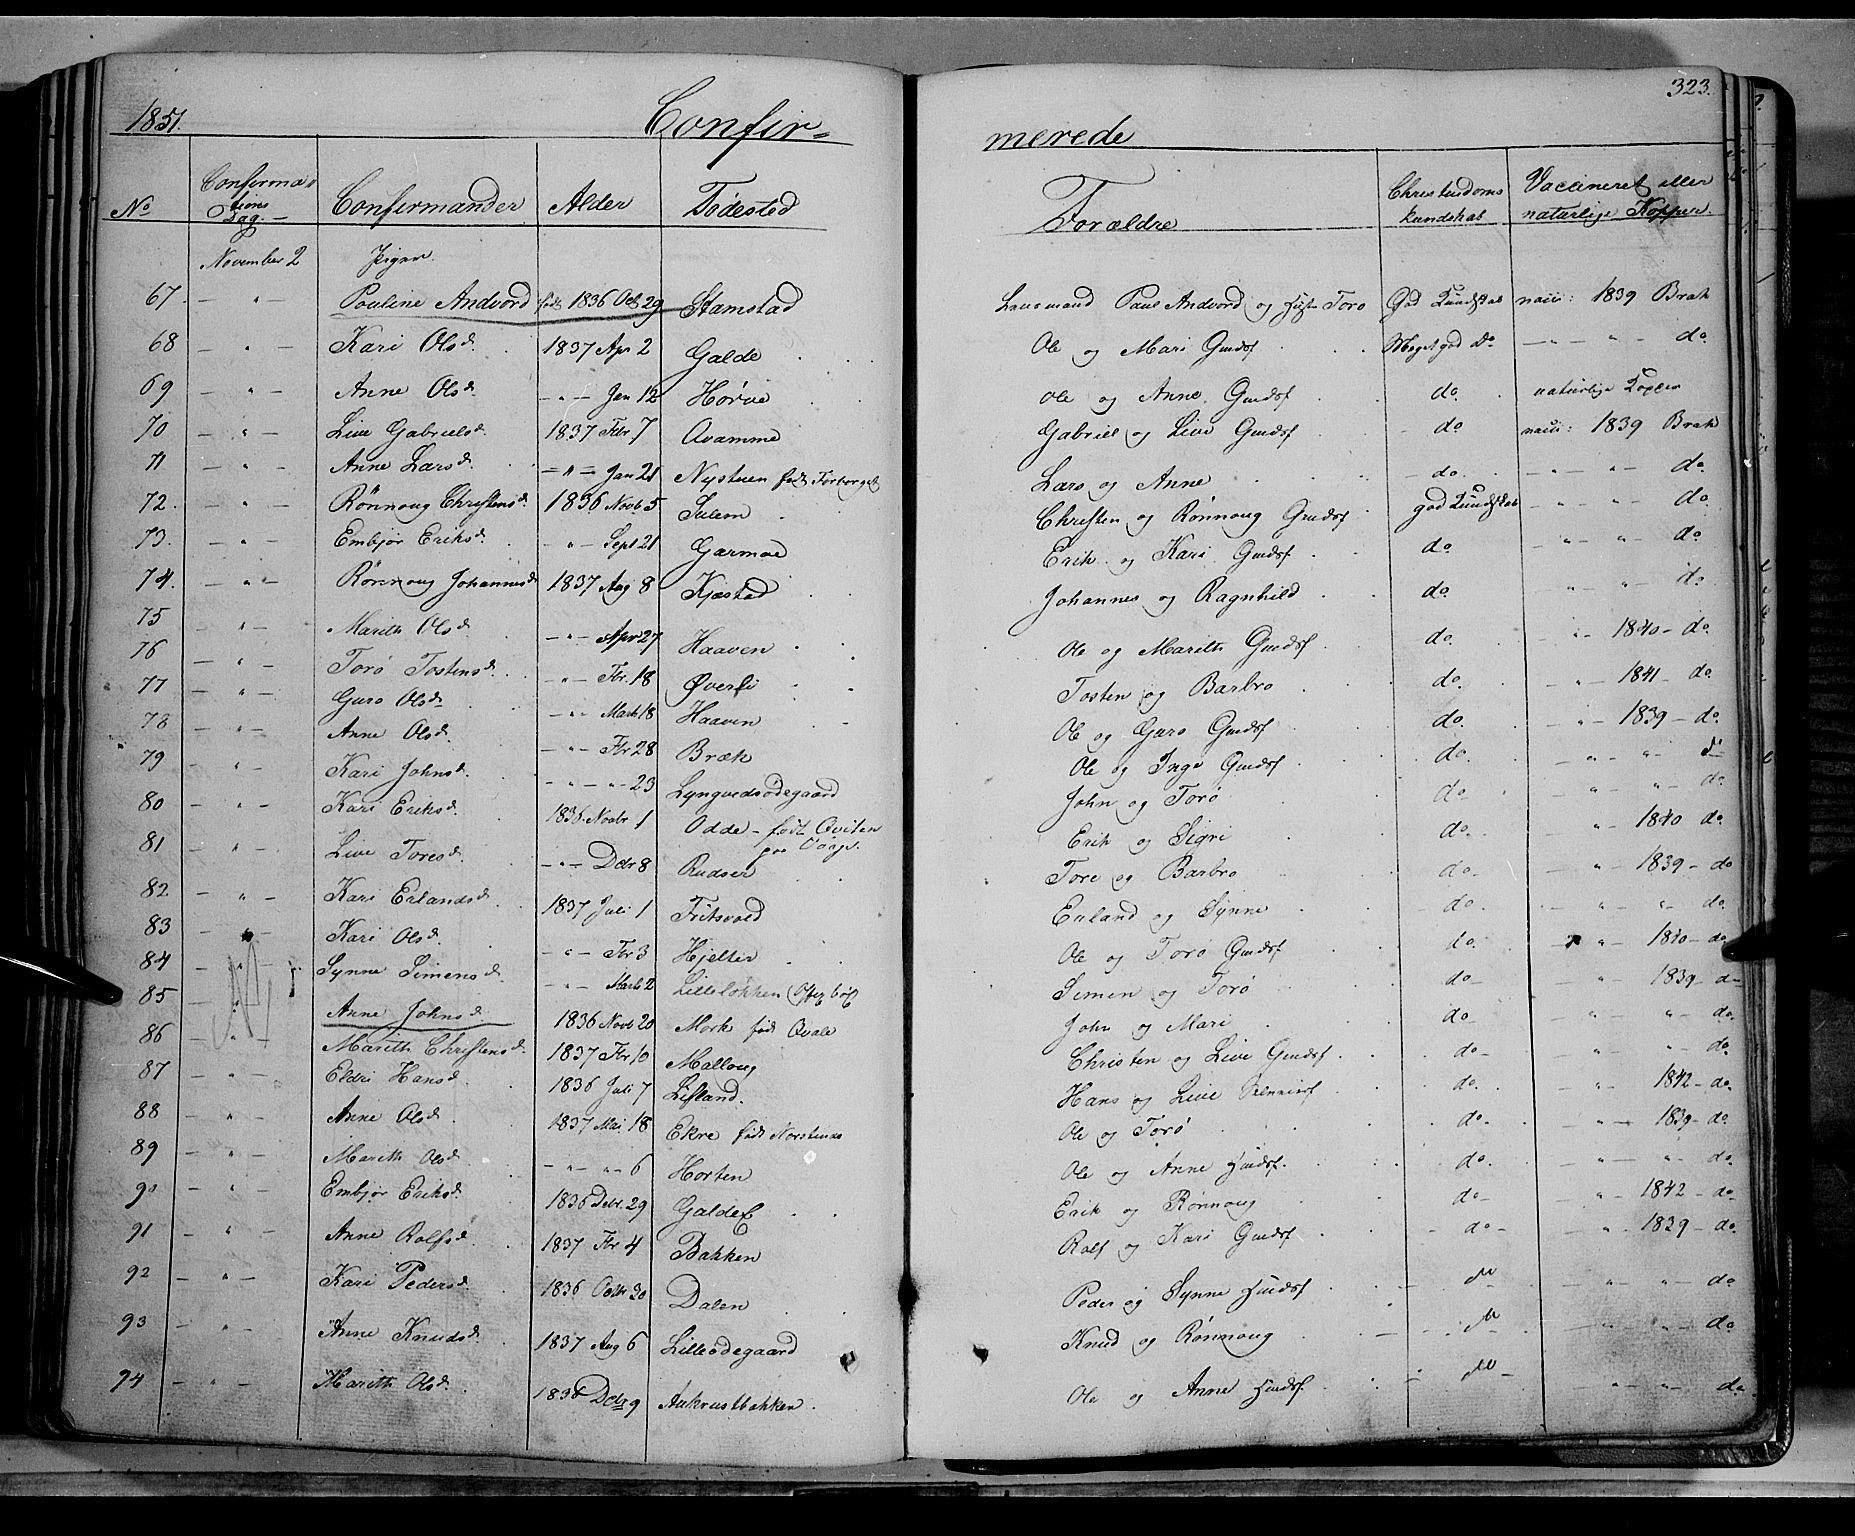 323.
1851. Confir= merede
No Confirmations Dag. Confirmander Alder Fødested Forældre Christendoms kundskab Vaccineret eller naturlige Kopper.
November 2 Piger
67 — " — Pouline Andvord født 1836 Oct 29 Stamstad Lensmand Paul Andvord og Toro God Kundskab vacc: 1839 Bræk
68 — " — Kari Olsd. 1837 Apr 2 Galde Ole og Mari Guldsf Meget god Do — " — " — do
69 — " — Anne Olsd. — " — Jan 12 Hørve Ole og Anne Guldsf do. naturlige Kopper
70 — " — Live Gabrielsd. 1837 Fbr 7 Qvamme Gabriel og Live Guldsf do vacc: 1839 Bræk
71 — " — Anne Larsd. — " — Jan 21 Nystuen født Forberget Lars og Anne do. — " — " — do
72. — " — Rønnoug Christensd. 1836 Novb 5 Sulem Christen og Rønnoug Guldsf god Kundskab — " — " — do
73. — " — Embjør Eriksd. — " — Sept 21 Garmoe Erik og Kari Guldsf do. — " — " — do
74. — " — Rønnoug Johannesd. 1837 Aug 8 Kjæstad Johannes og Ragnhild do. " — " — do
75 — " — Marith Olsd. — " — Apr 27 Haaven Ole og Marith Guldsf do. " — 1840 — do.
76 — " — Torø Tostensd. — " — Fbr. 18 Øverli Tosten og Barbro do. — " — 1841 — do.
77 — " — Guro Olsd. — " — Marts 18 Haaven Ole og Guro Guldsf do. — " — 1839 — do.
78 — " — Anne Olsd. — " — Fbr 28 Bræk Ole og Inge Guldsf do. — " — " — do
79 — " — Kari Johnsd. — " — " — 23 Lyngvedsødegaard John og Torø do — " — " — do.
80 — " — Kari Eriksd. 1836 Novbr 1 Odde — født Qviten paa Vaage. Erik og Sigri do. — " — 1840 do.
81 — " — Live Toresd. — " — Dcbr 8 Rudser Tore og Barbro do. — " — 1839 — do
82 — " — Kari Erlandsd. 1837 Juli 1 Fritsvold Erland og Synne do. — " — " — do.
83 — " — Kari Olsd. — " — Fbr 3 Hjelter Ole og Torø Guldsf do. — " — 1840 — do
84 — " — Synne Simensd. — " — Marts 2 Lilleløkken Simen og Torø do — — " — 1839 — do
85 — " — Anne Johnsd. 1836 Novb 20 Mork født Qvale John og Mari do — " — " — do.
86 — " — Marith Christensd. 1837 Fbr 10 Malloug Christen og Live Guldsf do — " — " — do.
87 — " — Eldri Hansd. 1836 Juli 7 Lifland. Hans og Live do. — " — 1842 — do.
88 — " — Anne Olsd. 1837 Mai 18 Ekre født Norstenes Ole og Torø do. — " — 1839 — do.
89 — " — Marith Olsd. — " — " — 6 Horten Ole og Anne Huusf. do. — " — " — do.
90 — " — Embjør Eriksd. 1836 Dcbr. 29 Galde Erik og Rønnoug do — — " — 1842 — do
91 — " — Anne Rolfsd. 1837 Fbr 4 Bakken Rolf og Kari Guldsf do — — " — 1839 — do
92 — " — Kari Pedersd. 1836 Octbr 30 Dalen Peder og Synne Huusf do — " — " — do
93 — " — Anne Knudsd. 1837 Aug 6 Lilleødegaard Knud og Rønnoug do — " — " — do.
94 — " — Marith Olsd. 1836 Dcbr 9 Aukrustbakken. Ole og Anne Huusf. do — " — " — do.